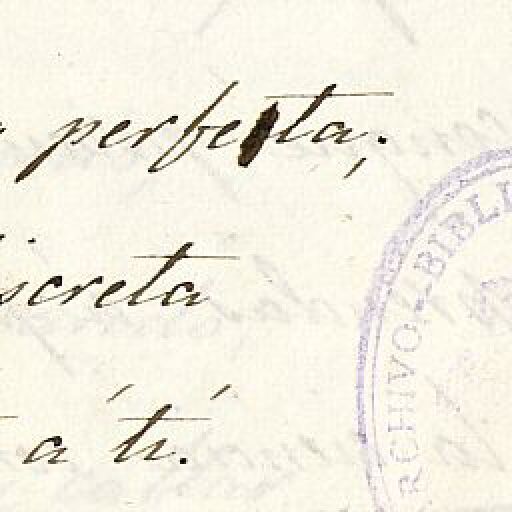 perfecta;
iscreta
á tí.
ARCHIVO.-BIBLI